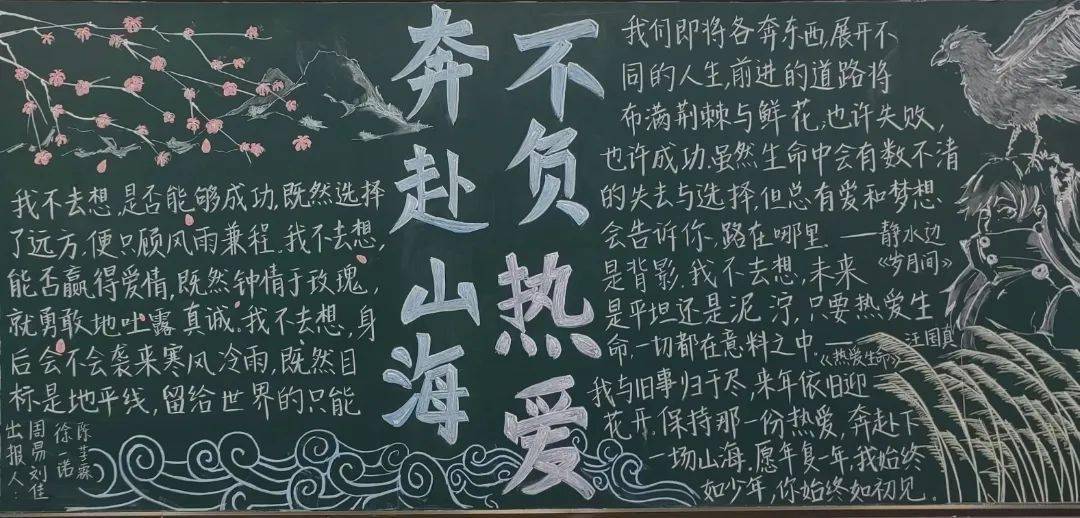 奔赴山海
不负热爱
我们即将各奔东西,展开不
同的人生,前进的道路将
布满荆棘与鲜花,也许失败,
也许成功.虽然生命中会有数不清
的失去与选择,但总有爱和梦想
会告诉你,路在哪里.——静水边
《岁月间》
我不去想,是否能够成功,既然选择
了远方,便只顾风雨兼程.我不去想,
能否赢得爱情,既然钟情于玫瑰,
就勇敢地吐露真诚.我不去想,身
后会不会袭来寒风冷雨,既然目
标是地平线,留给世界的只能
是背影.我不去想,未来
是平坦还是泥泞,只要热爱生
命,一切都在意料之中.——汪国真
《热爱生命》
我与旧事归于尽,来年依旧迎
花开,保持那一份热爱,奔赴下
一场山海.愿年复一年,我始终
如少年,你始终如初见.
出报人:
周易刘佳
徐一诺
陈